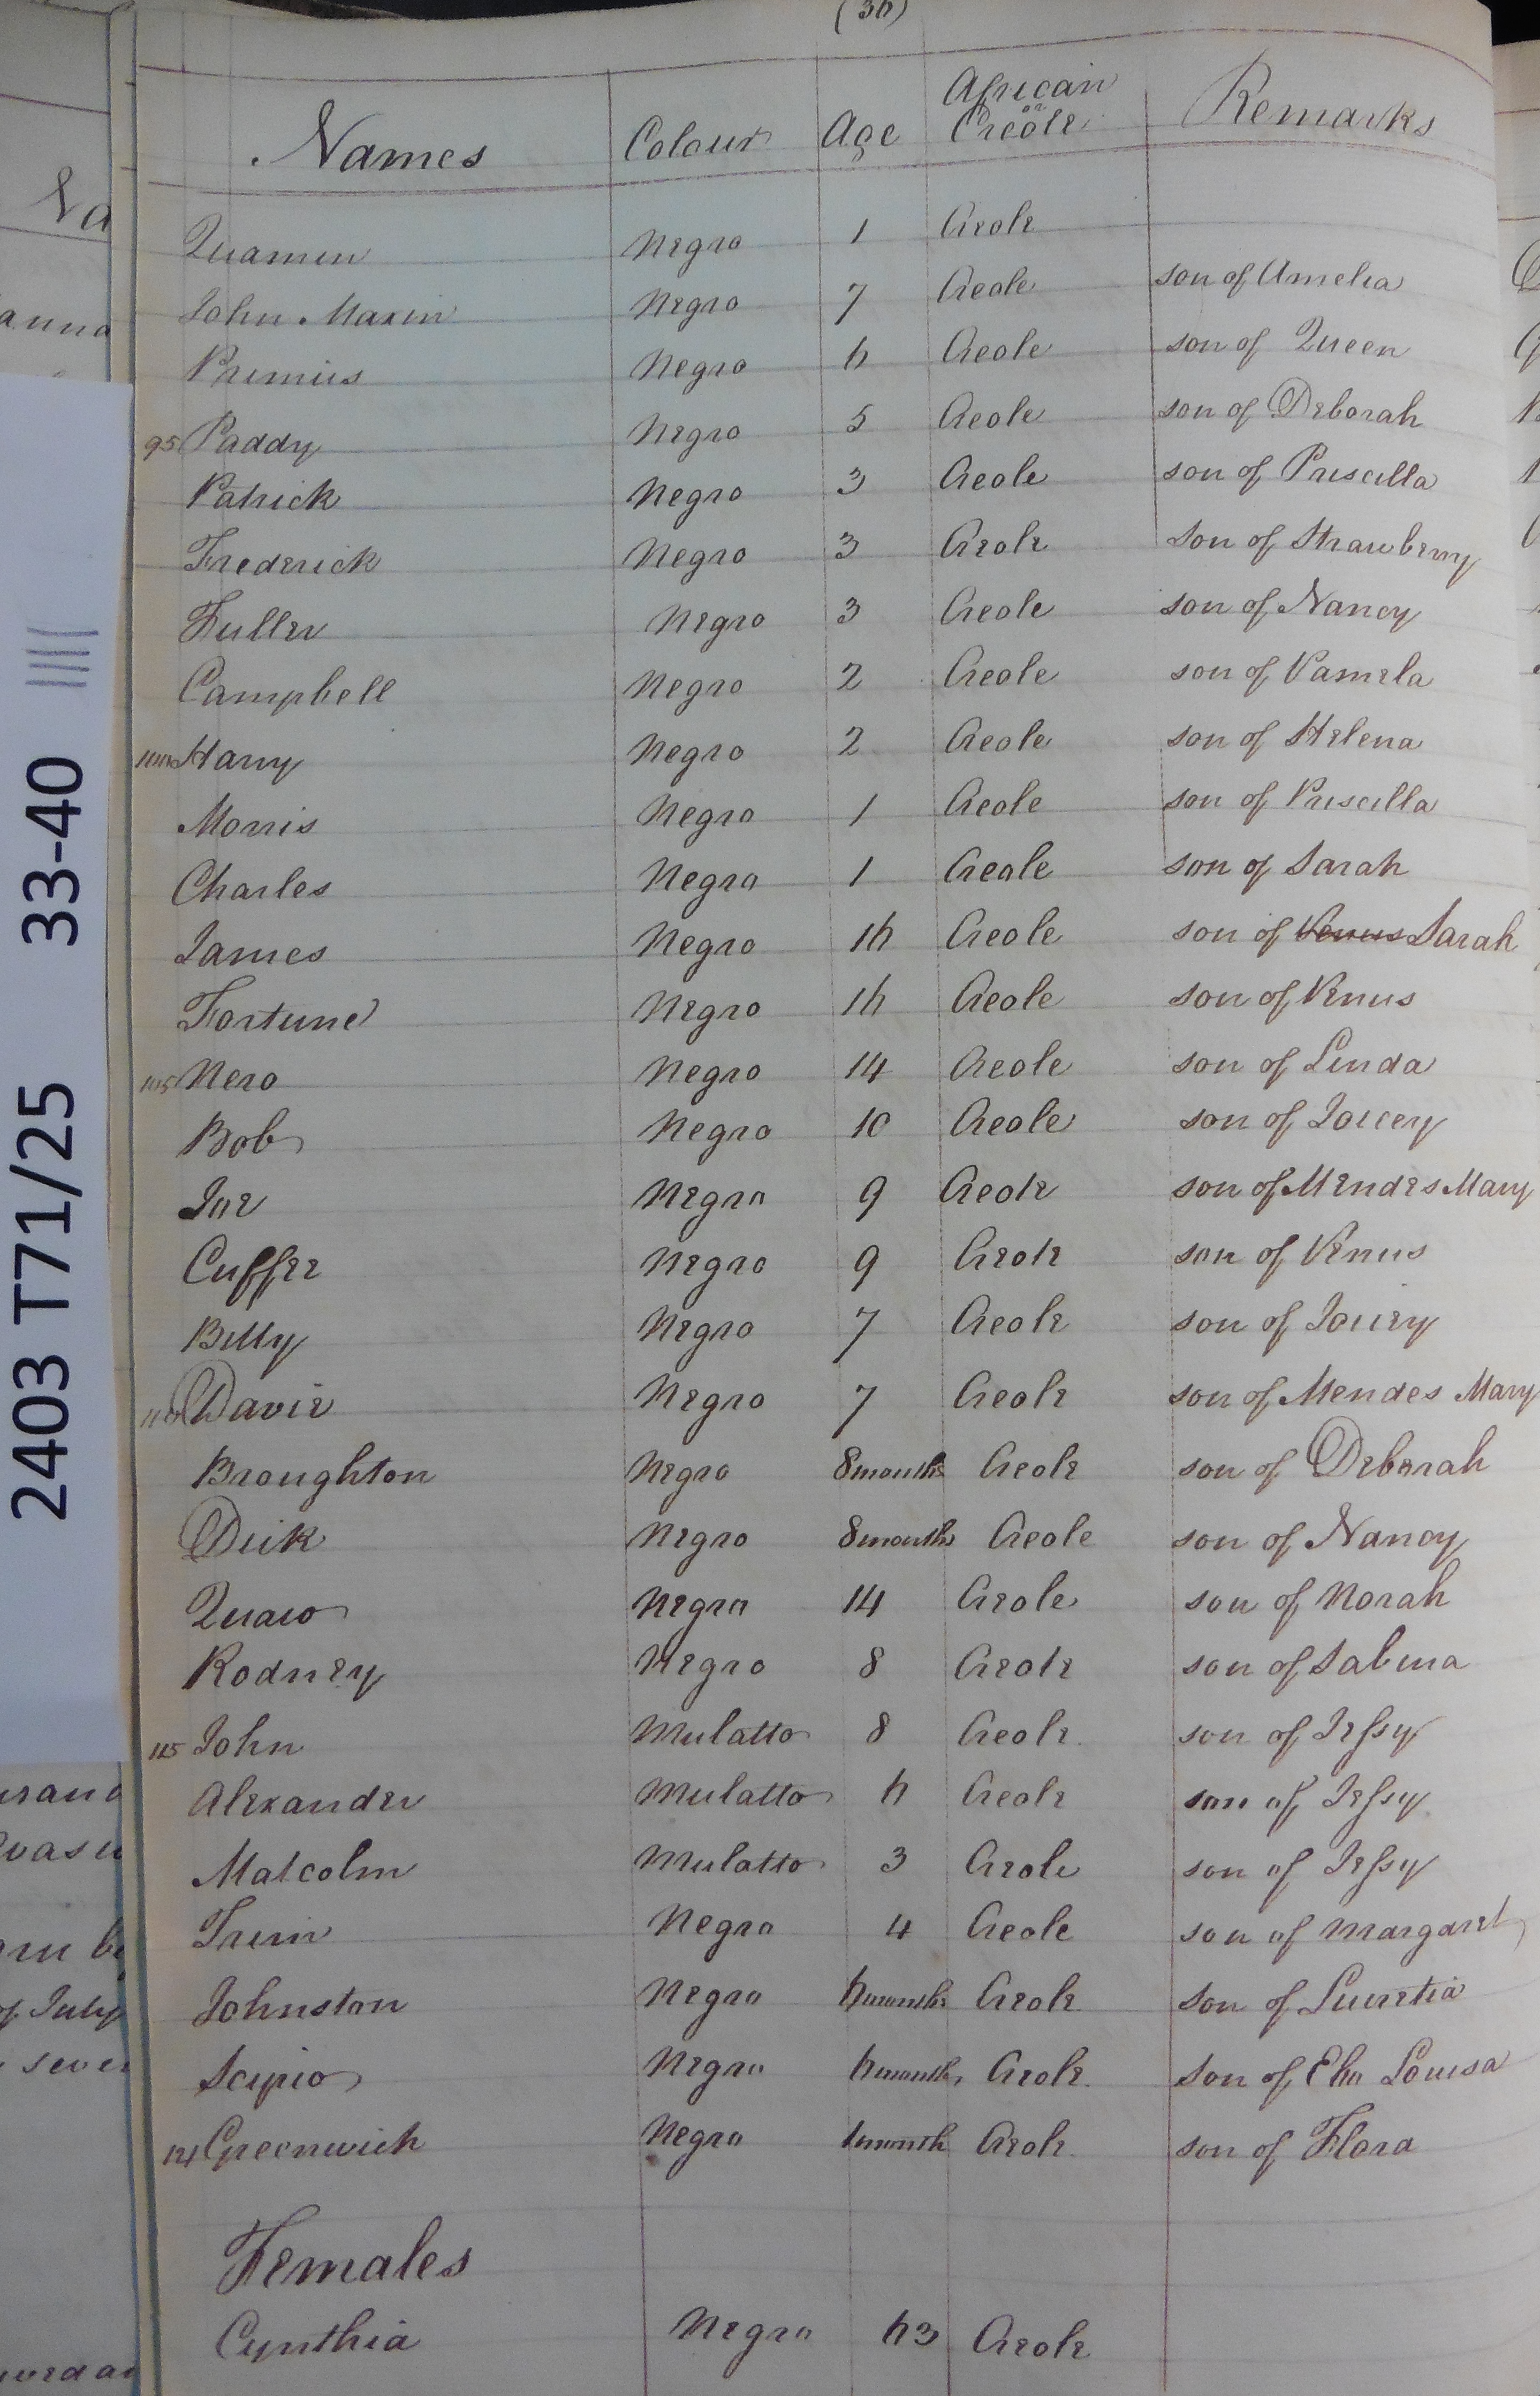 (36)
Names Colour Age African or Creole Remarks
Quamin Negro 1 Creole
John Maxin Negro 7 Creole son of Amelia
Primus Negro 6 Creole son of Queen
95 Paddy Negro 5 Creole son of Deborah
Patrick Negro 3 Creole son of Priscilla
Frederick Negro 3 Creole son of Strawberry
Fuller Negro 3 Creole son of Nancy
Campbell Negro 2 Creole son of Pamela
100 Harry Negro 2 Creole son of Helena
Morris Negro 1 Creole son of Priscilla
Charles Negro 1 Creole son of Sarah
James Negro 16 Creole son of Venus Sarah
Fortune Negro 16 Creole son of Venus
105 Nero Negro 14 Creole son of Linda
Bob Negro 10 Creole son of Joicey
Joe Negro 9 Creole son of Mendes Mary
Cuffee Negro 9 Creole son of Venus
Billy Negro 7 Creole son of Joicey
110 Davie Negro 7 Creole son of Mendes Mary
Broughton Negro 8 months Creole son of Deborah
Dick Negro 8 months Creole son of Nancy
Quaw Negro 14 Creole son of Norah
Rodney Negro 8 Creole son of Sabina
115 John Mulatto 8 Creole son of Jessy
Alexander Mulatto 6 Creole son of Jessy
Malcolm Mulatto 3 Creole son of Jessy
Trim Negro 4 Creole son of Margaret
Johnston Negro 6 months Creole son of Lucretia
Scipio Negro 6 months Creole son of Louisa
121 Greenwich Negro 1 month Creole son of Flora
Females
Cynthia Negro 63 Creole
2403 T71/25 33-40
Na
anna
of July